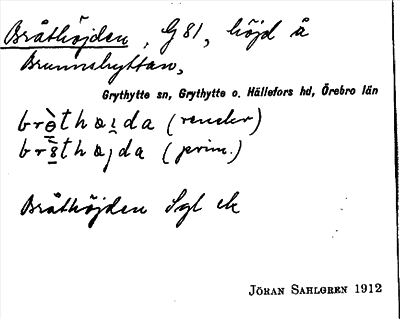 Bråthöjden, G 81, höjd å
Brunnshyttan,
Grythytte sn, Grythytte o. Hällefors hd, Örebro län
(prim.)
Bråthöjden Sgl ek
JÖRAN SAHLGREN 1912